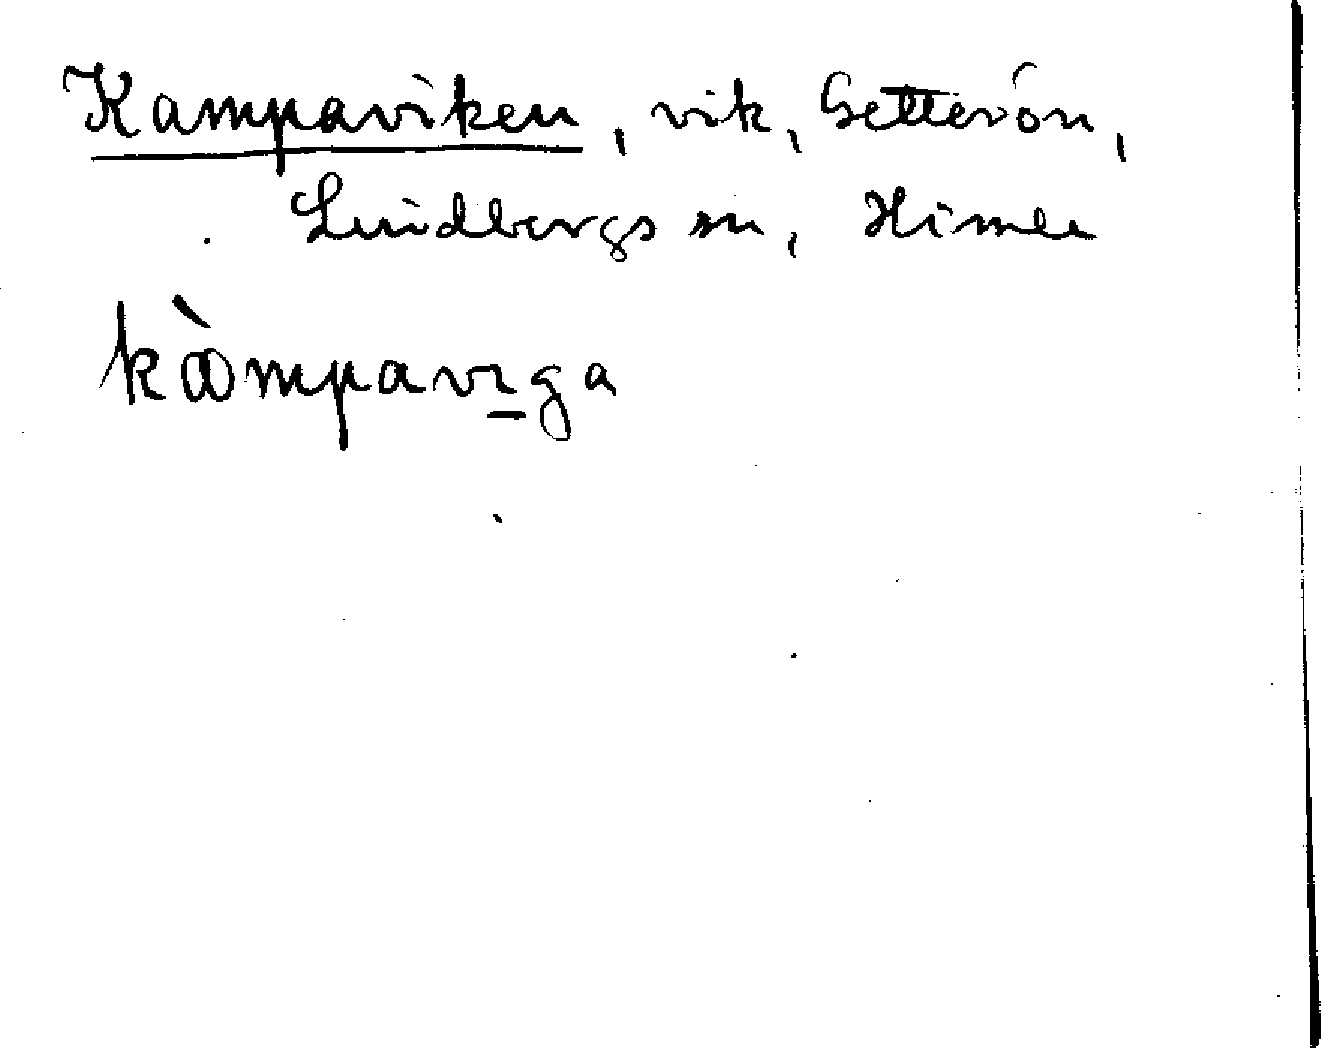 Kampaviken, vik, Getterön,
Lindbergs sn, Himle
kàmpavi̠ga